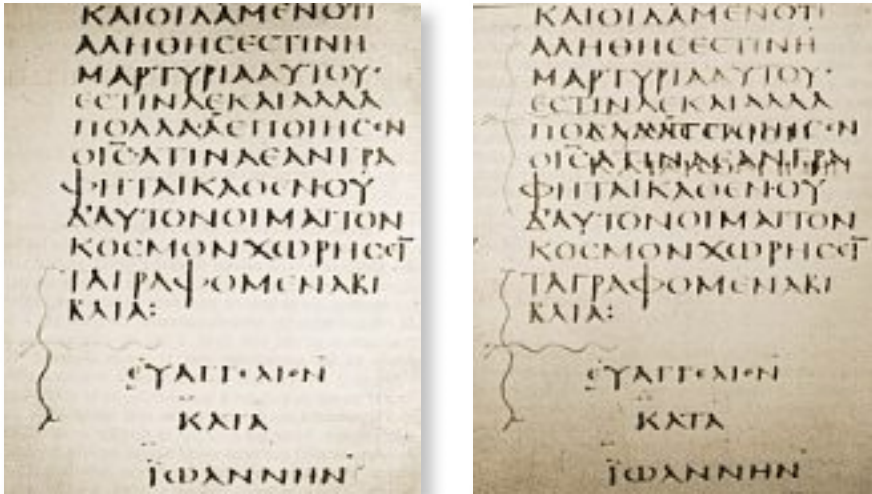 ΚΑΙΟΙΔΑΜΕΝΟΤΙ
ΑΛΗΘΗCΕCΤΙΝΗ
ΜΑΡΤΥΡΙΑΑΥΤΟΥ·
ΕCΤΙΝΔΕΚΑΙΑΛΛΑ
ΠΟΛΛΑΑΕΠΟΙΗCΕΝ
ΟΙC̅ΑΤΙΝΑΕΑΝΓΡΑ
ΦΗΤΑΙΚΑΘΕΝΟΥ
Δ'ΑΥΤΟΝΟΙΜΑΙΤΟΝ
ΚΟCΜΟΝΧΩΡΗCΕΙ
ΤΑΓΡΑΦΟΜΕΝΑΒΙ
ΒΛΙΑ:
ΕΥΑΓΓΕΛΙΟΝ
ΚΑΤΑ
ΪΩΑΝΝΗΝ
ΚΑΙΟΙΔΑΜΕΝΟΤΙ
ΑΛΗΘΗCΕCΤΙΝΗ
ΜΑΡΤΥΡΙΑΑΥΤΟΥ·
ΕCΤΙΝΔΕΚΑΙΑΛΛΑ
ΠΟΛΛΑΑΕΠΟΙΗCΕΝ
ΟΙC̅ΑΤΙΝΑΕΑΝΓΡΑ
ΦΗΤΑΙΚΑΘΕΝΟΥ
Δ'ΑΥΤΟΝΟΙΜΑΙΤΟΝ
ΚΟCΜΟΝΧΩΡΗCΕΙ
ΤΑΓΡΑΦΟΜΕΝΑΒΙ
ΒΛΙΑ:
ΕΥΑΓΓΕΛΙΟΝ
ΚΑΤΑ
ΪΩΑΝΝΗΝ